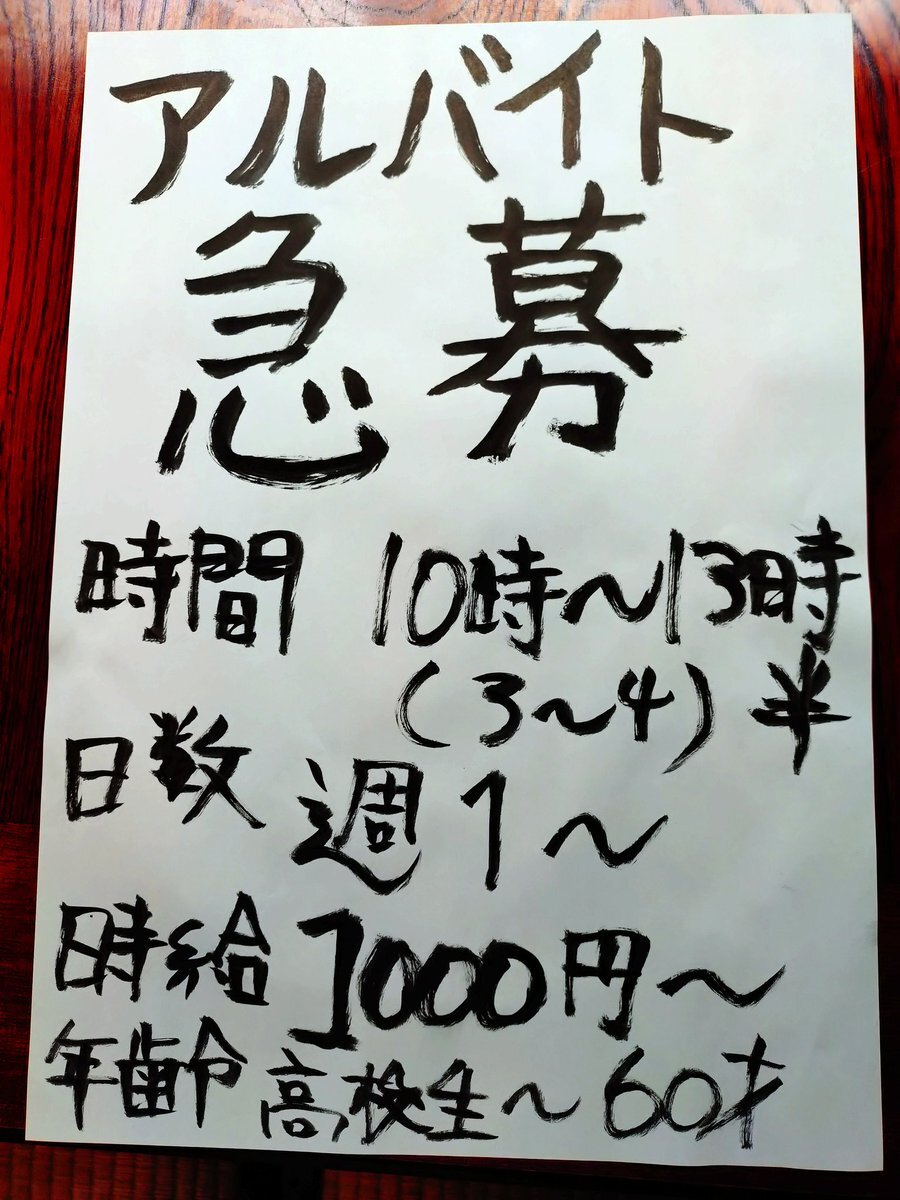 アルバイト
急募
時間 10時～13時半
(3～4)
日数 週1～
時給 1000円～
年齢 高校生～60才